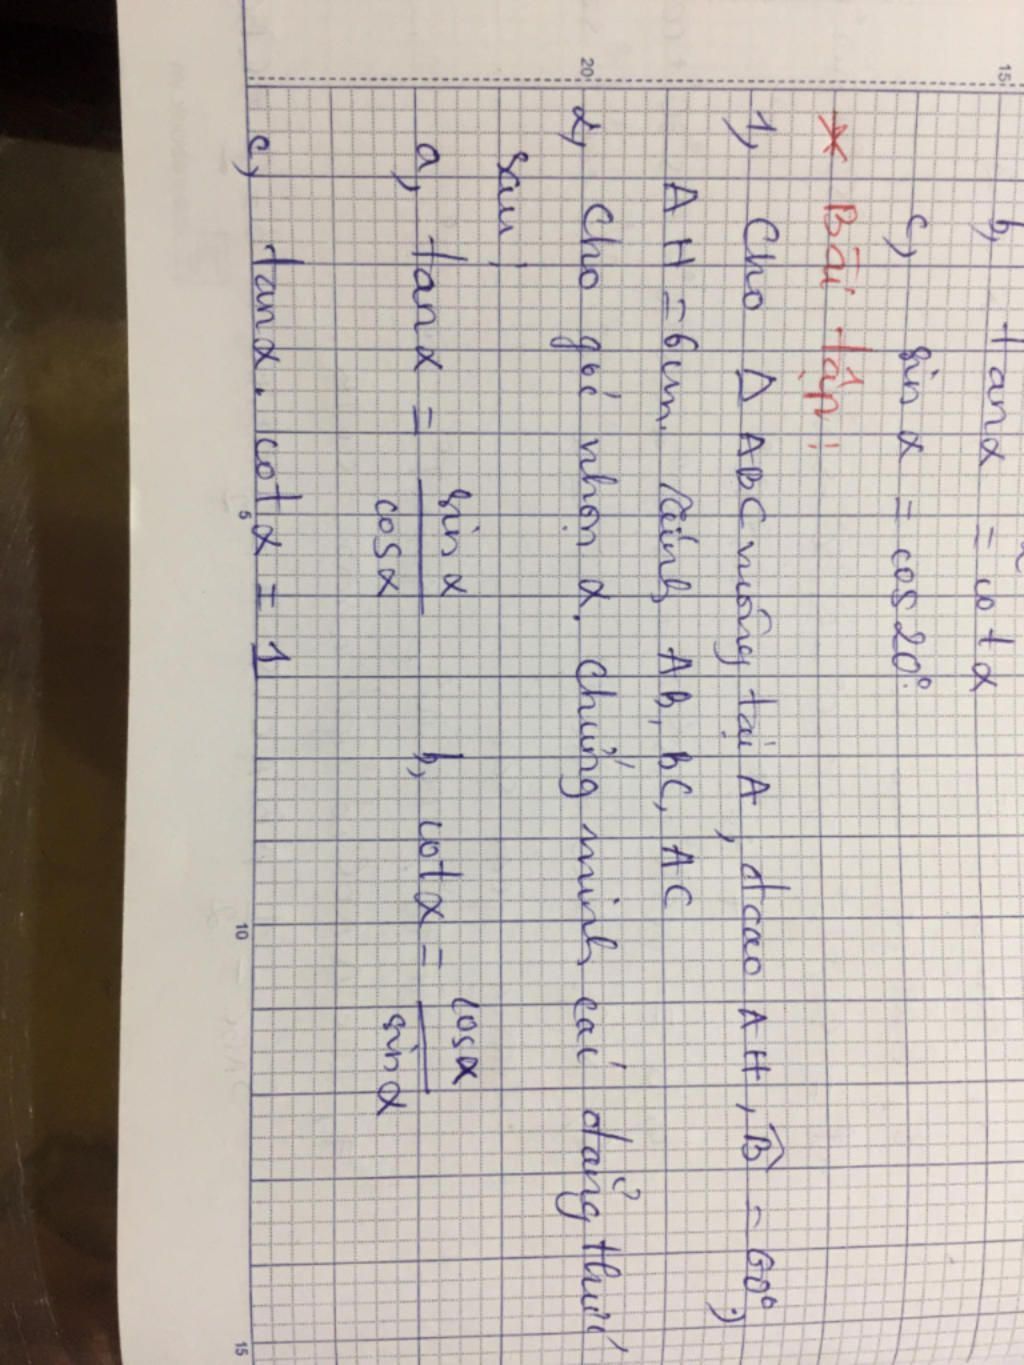 b, tanα = cotα
c, sin α = cos 20°.
* Bài tập:
1, Cho Δ ABC vuông tại A, đcao AH, B̂ = 60° ;
AH = 6cm. Tính AB, BC, AC
2, Cho góc nhọn α. Chứng minh các đẳng thức
sau:
a, tanα = sin α / cosα    b, cotα = cosα / sin α
c, tanα. cotα = 1
15
20
5
10
15